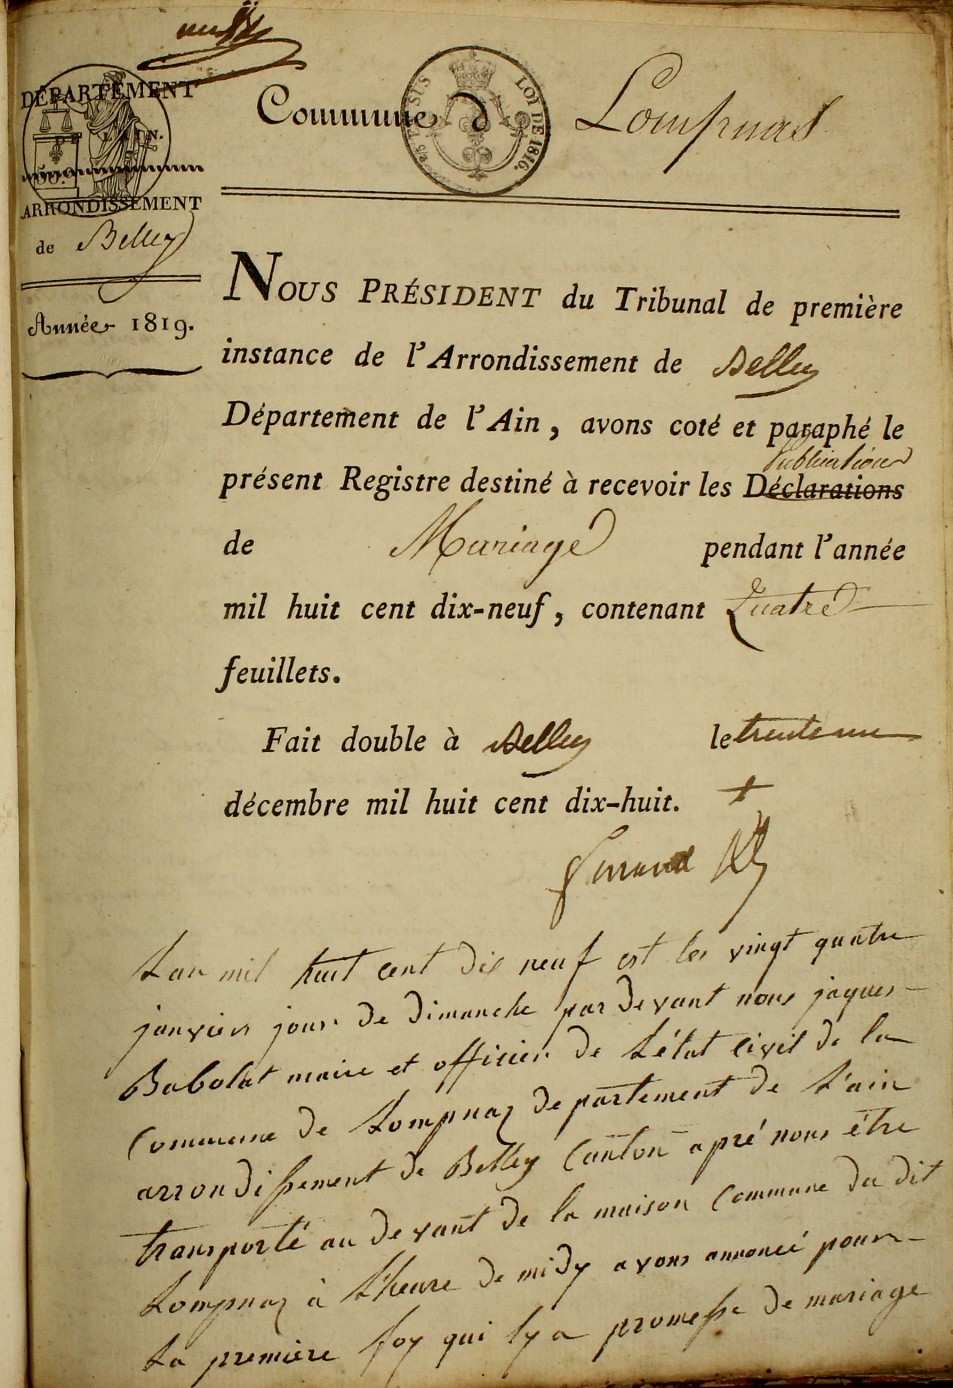 DÉPARTEMENT
ARRONDISSEMENT
de Belley
Année 1819.
LOI DE 1816.
Commune d Lompnas
NOUS PRÉSIDENT du Tribunal de première
instance de l'Arrondissement de Belley
Département de l'Ain, avons coté et paraphé le
publications
présent Registre destiné à recevoir les Déclarations
de Mariage pendant l'année
mil huit cent dix-neuf, contenant Quatre
feuillets.
Fait double à Belley le trente un
décembre mil huit cent dix-huit.
Lan mil huit cent dis neuf est les vingt quatre
janvier jour de dimanche par devant nous jaques
Babolat maire et officier de L'état civil de la
Commune de Lompnaz departement de L'ain
arrondissement de Belley Canton apré nous être
transporté au devant de la maison Commune du dit
Lompnaz à L'heure de midy avons annoncé pour
La premiere foy qui ly a promesse de mariage